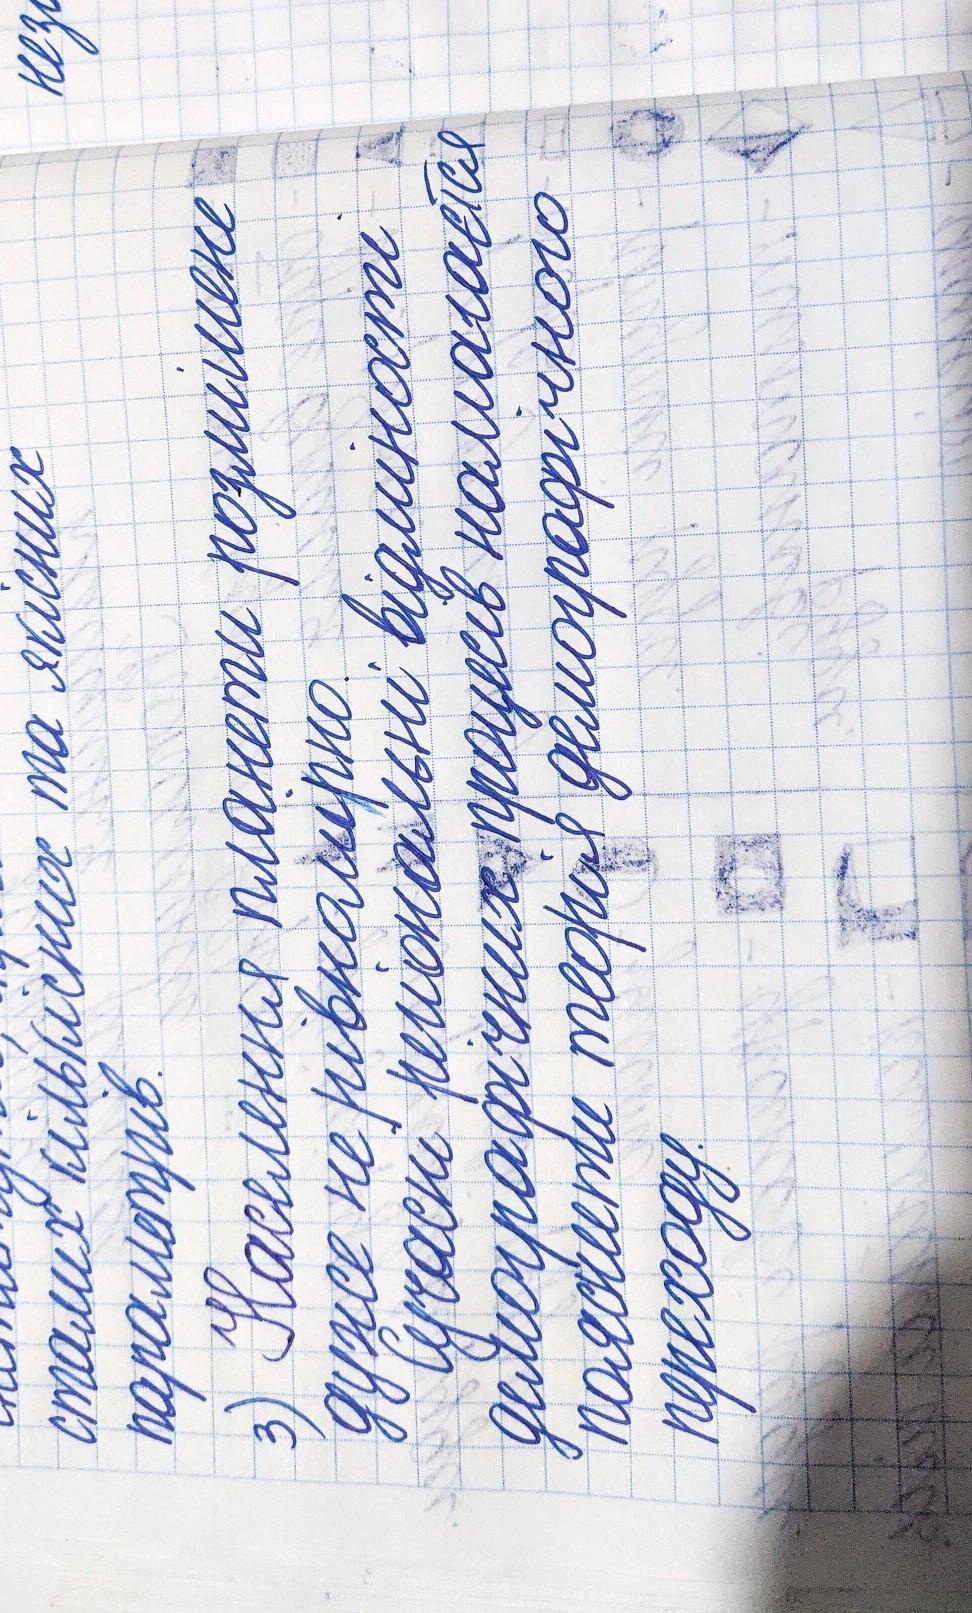 незо
сталих кількісних та якісних
параметрів.
3) Населення планети розміщене
дуже не рівномірно.
Сучасні регіональні відмінності
демографічних процесів намагається
пояснити теорія демографічного
переходу.